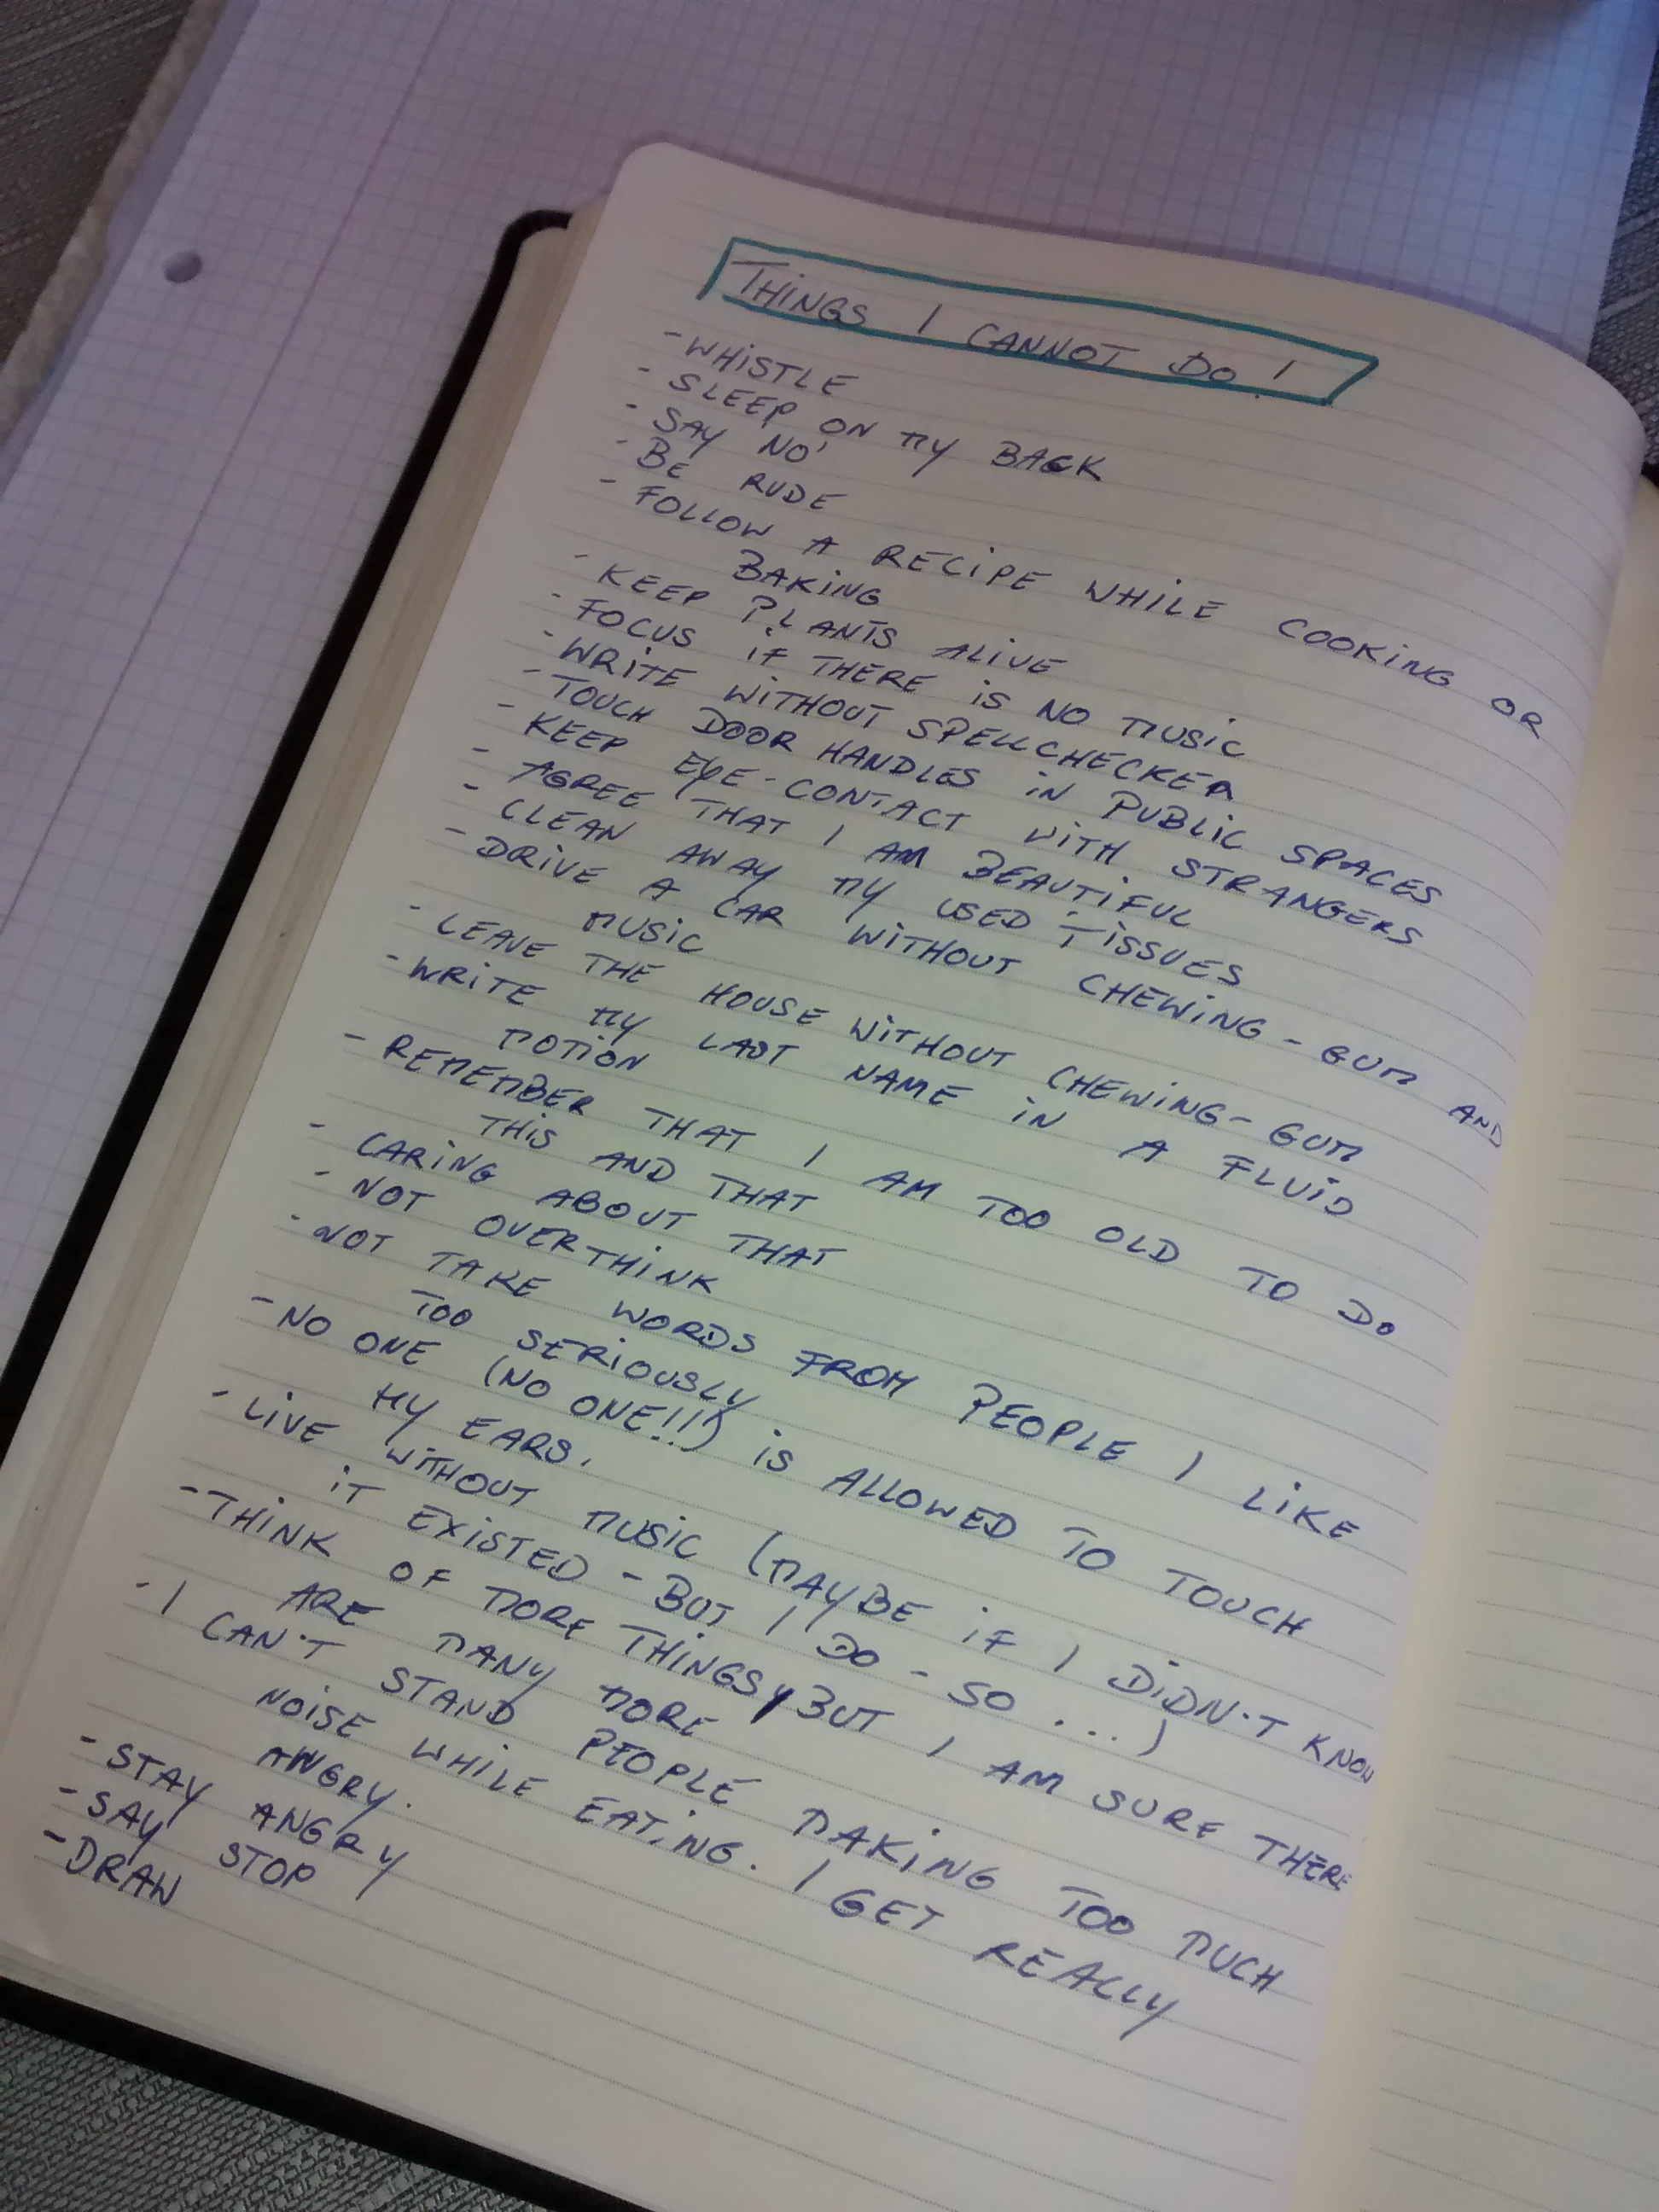 THINGS I CANNOT DO!
- WHISTLE
- SLEEP ON MY BACK
- SAY NO'
- BE RUDE
- FOLLOW A RECIPE WHILE COOKING OR
BAKING
- KEEP PLANTS ALIVE
- FOCUS IF THERE IS NO MUSIC
- WRITE WITHOUT SPELLCHECKER
- TOUCH DOOR HANDLES IN PUBLIC SPACES
- KEEP EYE-CONTACT WITH STRANGERS
- AGREE THAT I AM BEAUTIFUL
- CLEAN AWAY MY USED TISSUES
- DRIVE A CAR WITHOUT CHEWING-GUM AND
MUSIC
- LEAVE THE HOUSE WITHOUT CHEWING-GUM
- WRITE MY LAST NAME IN A FLUID
MOTION
- REMEMBER THAT I AM TOO OLD TO DO
THIS AND THAT
- CARING ABOUT THAT
- NOT OVERTHINK
- NOT TAKE WORDS FROM PEOPLE I LIKE
TOO SERIOUSLY
- NO ONE (NO ONE!!!) IS ALLOWED TO TOUCH
MY EARS.
- LIVE WITHOUT MUSIC (MAYBE IF I DIDN'T KNOW
IT EXISTED - BUT I DO - SO ...)
- THINK OF MORE THINGS, BUT I AM SURE THERE
ARE MANY MORE
- I CAN'T STAND PEOPLE MAKING TOO MUCH
NOISE WHILE EATING. I GET REALLY
ANGRY.
- STAY ANGRY
- SAY STOP
- DRAW